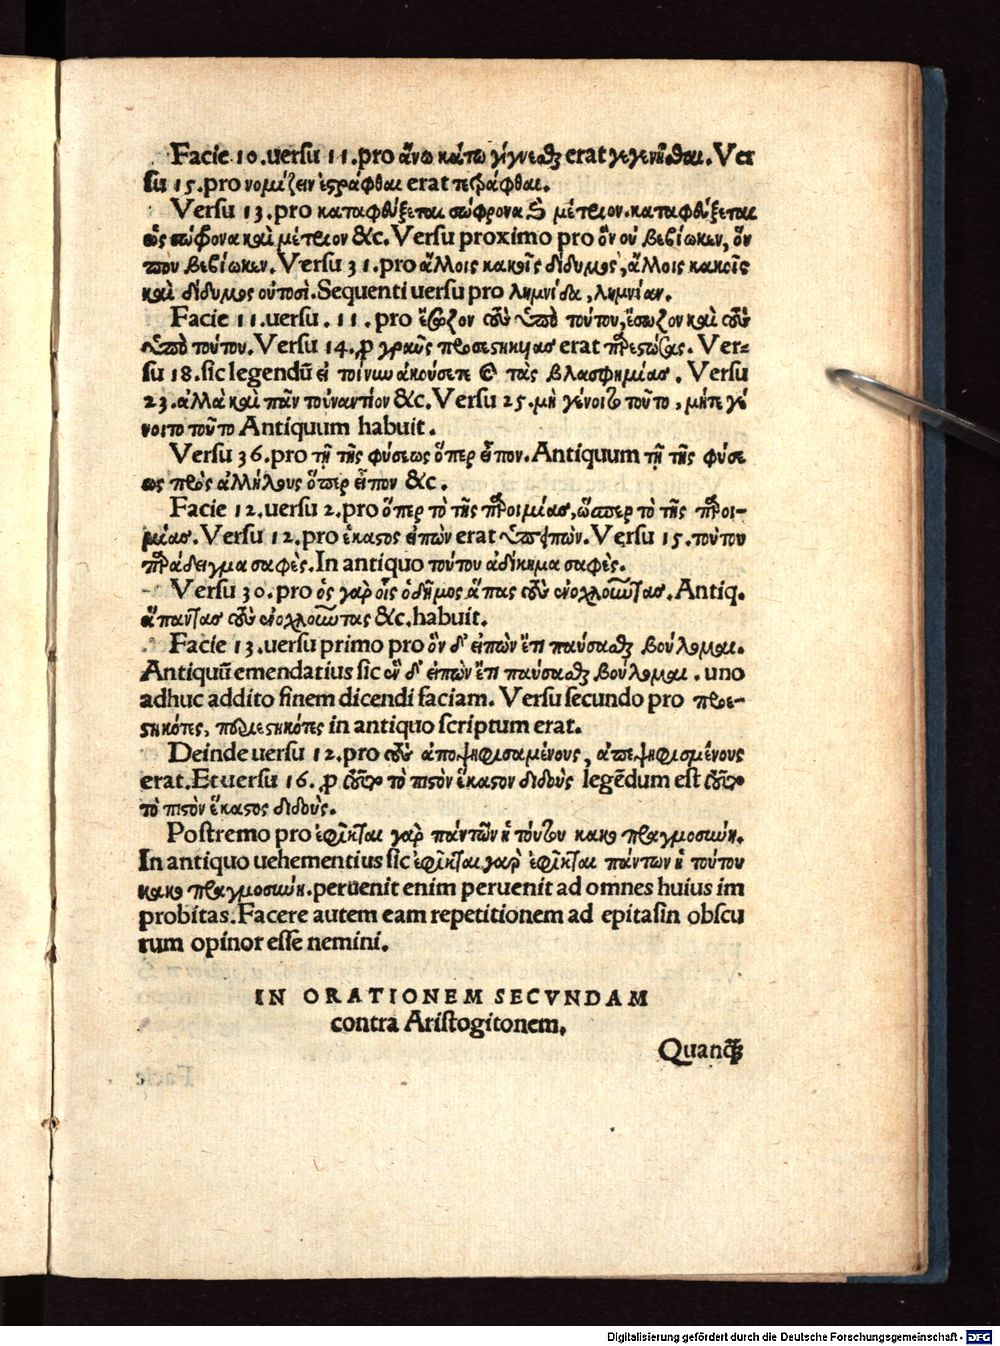 Facie 10. uersu 11. pro ἄνω κάτω γίγνεσθαι erat γεγενῆσθαι. Ver
su 15. pro νομίζειν ἐστράφθαι erat πεπράφθαι.
Versu 13. pro καταφθίξεται σώφρονα μέτριον. καταφθίξεται
ὡς σώφρονα καὶ μέτριον &c. Versu proximo pro ὃν οὐ βεβίωκεν, ὃν
που βεβίωκεν. Versu 31. pro ἄλλοις κακοῖς δίδυμος, ἄλλοις κακοῖς
καὶ δίδυμος οὑτοσὶ. Sequenti uersu pro λημνίδα, λημνίαν.
Facie 11. uersu. 11. pro ἔσωζον σὺν ὑπὸ τούτου, ἔσωζον καὶ σὺν
ὑπὸ τούτου. Versu 14. ꝓ γραῦς προσεστηκυίας erat παρεστώσας. Ver=
su 18. sic legendũ εἰ τοίνυν ἀκούσετε τὰς βλασφημίας. Versu
23. ἀλλὰ καὶ πᾶν τοὐναντίον &c. Versu 25. μὴ γένοιτο τοῦτο, μήτε γέ
νοιτο τοῦτο Antiquum habuit.
Versu 36. pro τῇ τῆς φύσεως ὅπερ εἶπον. Antiquum τῇ τῆς φύσε
ως πρὸς ἀλλήλους ὅπερ εἶπον &c.
Facie 12. uersu 2. pro ὅπερ τὸ τῆς παροιμίας, ὥσπερ τὸ τῆς παροι-
μίας. Versu 12. pro ἕκαστος εἰπὼν erat ὑπειπὼν. Versu 15. τούτου
παράδειγμα σαφὲς. In antiquo τούτου ἀδίκημα σαφὲς.
Versu 30. pro ὃς γὰρ οἷς ὁ δῆμος ἅπας τοὺς ἐνοχλοῦντας. Antiq.
ἅπαντας τοὺς ἐνοχλοῦντας &c. habuit.
Facie 13. uersu primo pro ὃν δ' εἰπὼν ἔτι παύσασθαι βούλομαι.
Antiquũ emendatius sic ἓν δ' εἰπὼν ἔτι παύσασθαι βούλομαι. uno
adhuc addito finem dicendi faciam. Versu secundo pro προε-
στηκότες, παρεστηκότες in antiquo scriptum erat.
Deinde uersu 12. pro τοὺς ἀποψηφισαμένους, ἀπεψηφισμένους
erat. Et uersu 16. ꝓ τὸ πιστὸν ἕκαστον διδοὺς legẽdum est
τὸ πιστὸν ἕκαστος διδοὺς.
Postremo pro ἐφῖκται γὰρ πάντων ἡ τούτου κακοπραγμοσύνη.
In antiquo uehementius sic ἐφῖκται γὰρ ἐφῖκται πάντων ἡ τούτου
κακοπραγμοσύνη. peruenit enim peruenit ad omnes huius im
probitas. Facere autem eam repetitionem ad epitasin obscu
rum opinor esse nemini.
IN ORATIONEM SECVNDAM
contra Aristogitonem.
Quanꝗ̃
Digitalisierung gefördert durch die Deutsche Forschungsgemeinschaft - DFG